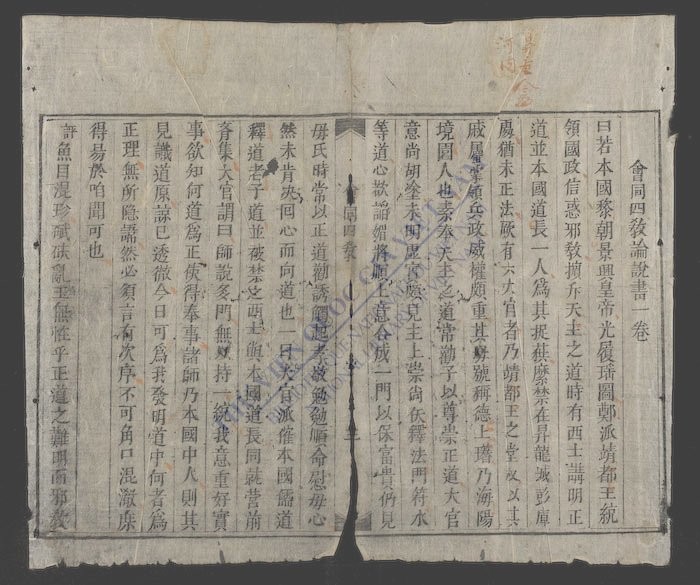 會同四教論說書一卷
曰若本國黎朝景興皇帝光履璠圖鄭派靖都王統
領國政信惑邪教擯斥天主之道時有西士講明正
道並本國道長一人為其捉獲縻禁在昇龍城彭庫
處猶未正法厥有六大官者乃靖都王之堂叔以其
戚屬掌領兵政威權頗重其號稱德上璿乃海陽
境國人也素奉天主之道常勸子以尊崇正道大官
意尚胡塗未明虛實願見主上崇尚佞釋法門符水
等道心欲謟媚將順上意合成一門以保富貴仍見
會同四教
毋氏時常以正道勸誘觸起孝敬勉勉順命慰母心
然未肯決回心而向道也一日大官派催本國儒道
釋道老子道並被禁之西士與本國道長同就營前
齊集大官謂曰師說多門無以持一統我意重好實
事欲知何道為正俟得奉事諸師乃本國中人則其
見識道原諒已透徹今日可為我發明道中何者為
正理無所隱諱然必須言有次序不可角口混淆庶
得易於咱聞可也
評魚目混珍碔砆亂玉無怪乎正道之難明而邪教
THƯ VIỆN QUỐC GIA VIỆT NAM